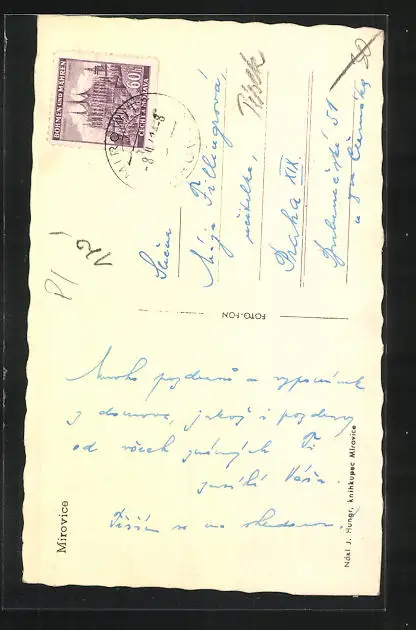 BÖHMEN UND MÄHREN
ČECHY A MORAVA
60
Tisek
Slečna
Mája Fillingrová,
učitelka,
Praha XIX.
51
FOTO-FON
Mnoho pozdravů a vzpomínek
z domova, jakož i pozdravy
od všech známých Ti
zasílá Váša.
Těším se na shledanou.
Mirovice
Nákl. J. Hungr, knihkupec Mirovice